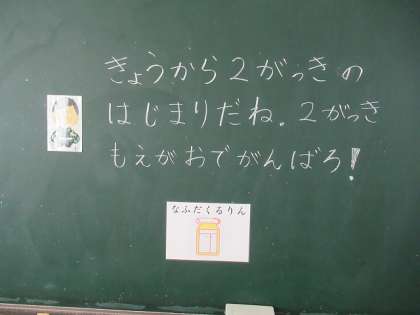 きょうから2がっきの
はじまりだね。2がっき
もえがおでがんばろ!
なふだくるりん